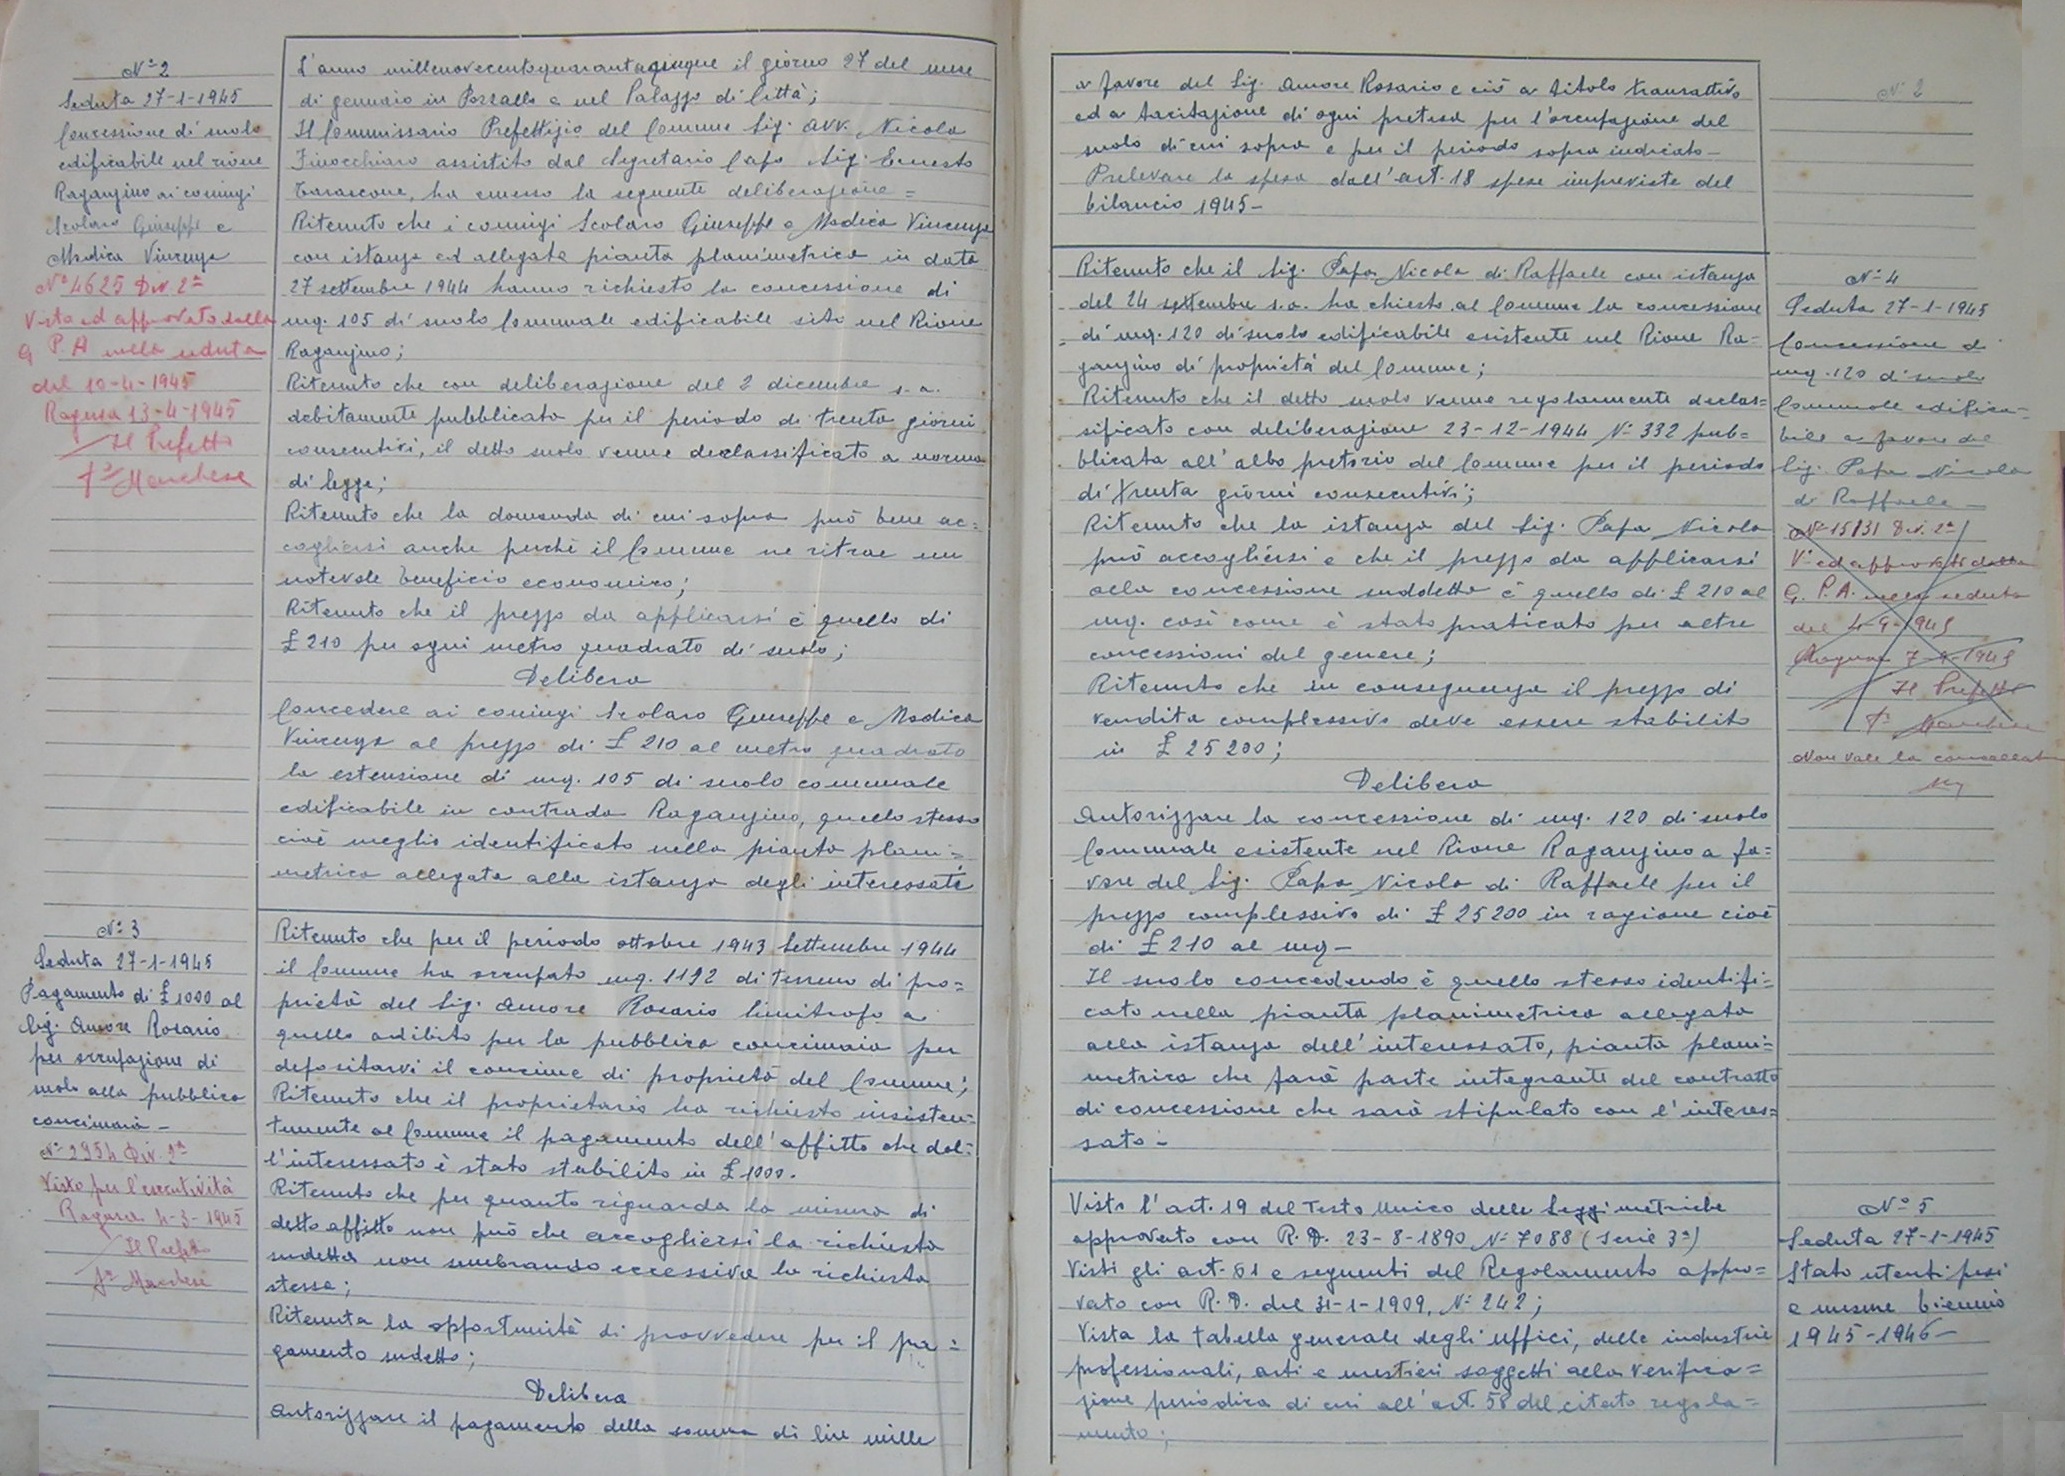 N° 2
Seduta 27-1-1945
Concessione di suolo
edificabile nel rione
Raganzino ai coniugi
Scolaro Giuseppe e
Modica Vincenza
N° 4625 Div. 2ª
Visto ed approvato dalla
G P. A nella seduta
del 10-4-1945
Ragusa 13-4-1945
Il Prefetto
Fº Marchese
L'anno millenovecentoquarantacinque il giorno 27 del mese
di gennaio in Pozzallo e nel Palazzo di Città;
Il Commissario Prefettizio del Comune Sig. Avv. Nicola
Finocchiaro assistito dal Segretario Capo Sig. Ernesto
Tarascone, ha emesso la seguente deliberazione=
Ritenuto che i coniugi Scolaro Giuseppe e Modica Vincenza
con istanza ed allegata pianta planimetrica in data
27 settembre 1944 hanno richiesto la concessione di
mq. 105 di suolo Comunale edificabile sito nel Rione
Raganzino;
Ritenuto che con deliberazione del 2 dicembre s.a.
debitamente pubblicata per il periodo di trenta giorni
consecutivi, il detto suolo venne declassificato a norma
di legge;
Ritenuto che la domanda di cui sopra può bene ac=
cogliersi anche perchè il Comune ne ritrae un
notevole beneficio economico;
Ritenuto che il prezzo da applicarsi è quello di
£ 210 per ogni metro quadrato di suolo;
Delibera
Concedere ai coniugi Scolaro Giuseppe e Modica
Vincenza al prezzo di £ 210 al metro quadrato
la estensione di mq. 105 di suolo comunale
edificabile in contrada Raganzino, quello stesso
cioè meglio identificato nella pianta plani=
metrica allegata alla istanza degli interessati
N° 3
Seduta 27-1-1945
Pagamento di £ 1000 al
Sig. Amore Rosario
per occupazione di
suolo alla pubblica
concimaia-
N° 2954 Div. 2ª
Visto per l'esecutività
Ragusa 4-3-1945
Il Prefetto
Fº Marchese
Ritenuto che per il periodo ottobre 1943 Settembre 1944
il Comune ha occupato mq. 1192 di terreno di pro=
prietà del Sig. Amore Rosario limitrofo a
quello adibito per la pubblica concimaia per
depositarvi il concime di proprietà del Comune;
Ritenuto che il proprietario ha richiesto insisten=
temente al Comune il pagamento dell'affitto che dal=
l'interessato è stato stabilito in £ 1000.
Ritenuto che per quanto riguarda la misura di
detto affitto non può che accogliersi la richiesta
sudetta non sembrando eccessiva la richiesta
stessa;
Ritenuta la opportunità di provvedere per il pa=
gamento sudetto;
Delibera
Autorizzare il pagamento della somma di lire mille
N° 2
a favore del Sig. Amore Rosario e ciò a titolo transattivo
ed a tacitazione di ogni pretesa per l'occupazione del
suolo di cui sopra e per il periodo sopra indicato-
Prelevare la spesa dall'art. 18 spese impreviste del
bilancio 1945-
Ritenuto che il Sig. Papa Nicola di Raffaele con istanza
del 24 settembre s.a. ha chiesto al Comune la concessione
di mq. 120 di suolo edificabile esistente nel Rione Ra-
ganzino di proprietà del Comune;
Ritenuto che il detto suolo venne regolarmente declas=
sificato con deliberazione 23-12-1944 N° 332 pub=
blicata all'albo pretorio del Comune per il periodo
di trenta giorni consecutivi;
Ritenuto che la istanza del Sig. Papa Nicola
può accogliersi e che il prezzo da applicarsi
alla concessione suddetta è quello di £ 210 al
mq. così come è stato praticato per altre
concessioni del genere;
Ritenuto che in conseguenza il prezzo di
vendita complessivo deve essere stabilito
in £ 25200;
Delibera
Autorizzare la concessione di mq. 120 di suolo
Comunale esistente nel Rione Raganzino a fa=
vore del Sig. Papa Nicola di Raffaele per il
prezzo complessivo di £ 25200 in ragione cioè
di £ 210 al mq-
Il suolo concedendo è quello stesso identifi=
cato nella pianta planimetrica allegata
alla istanza dell'interessato, pianta plani=
metrica che farà parte integrante del contratto
di concessione che sarà stipulato con l'interes=
sato-
N° 4
Seduta 27-1-1945
Concessione di
mq. 120 di suolo
Comunale edifica=
bile a favore del
Sig. Papa Nicola
di Raffaele-
N° 15131 Div. 2ª
Vº ed approvato dalla
G. P. A. nella seduta
del 4-9-1945
Ragusa 7-9-1945
Il Prefetto
Fº Marchese
Non vale la cancellatura
Visto l'art. 19 del Testo Unico delle Leggi metriche
approvato con R. D. 23-8-1890 N° 7088 (Serie 3ª)
Visti gli art. 61 e seguenti del Regolamento appro=
vato con R. D. del 31-1-1909, N° 242;
Vista la tabella generale degli uffici, delle industrie
professionali, arti e mestieri soggetti alla verifica=
zione periodica di cui all'art. 58 del citato regola=
mento;
N° 5
Seduta 27-1-1945
Stato utenti pesi
e misure biennio
1945-1946-